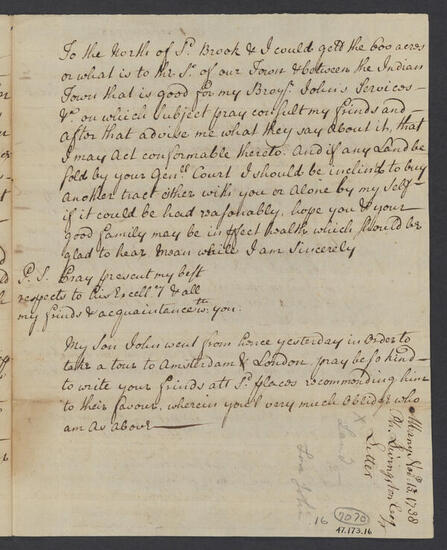 To the North of Sd. Brook & I could gett the 600 acres
or what is to the So. of our Town & between the Indian
Town that is good for my Broyr. John's Services
&c. on which Subject pray consult my frinds and
After that advise me what they say about it, that
I may Act conformable thereto. And if any Land be
sold by your Genll. Court I should be inclind to buy
Another tract either with you or Alone by my Self
if it could be had reasonably, hope you & your
good family may be in perfect health which Should be
glad to hear mean while I am Sincerely
P. S. Pray present my best
respects to his Excell'y & all
my frinds & acquaintance wth. you.
My Son John went from hence yesterday in Order to
take a tour to Amsterdam & London, pray be so kind
to write your frinds att Sd. places recommending him
to their favour, wherein you'l very much Oblidge who
am As above
Albany 13. 1738
Ph. Livingston Esq
Letter
Land
16
7070
47.173.16